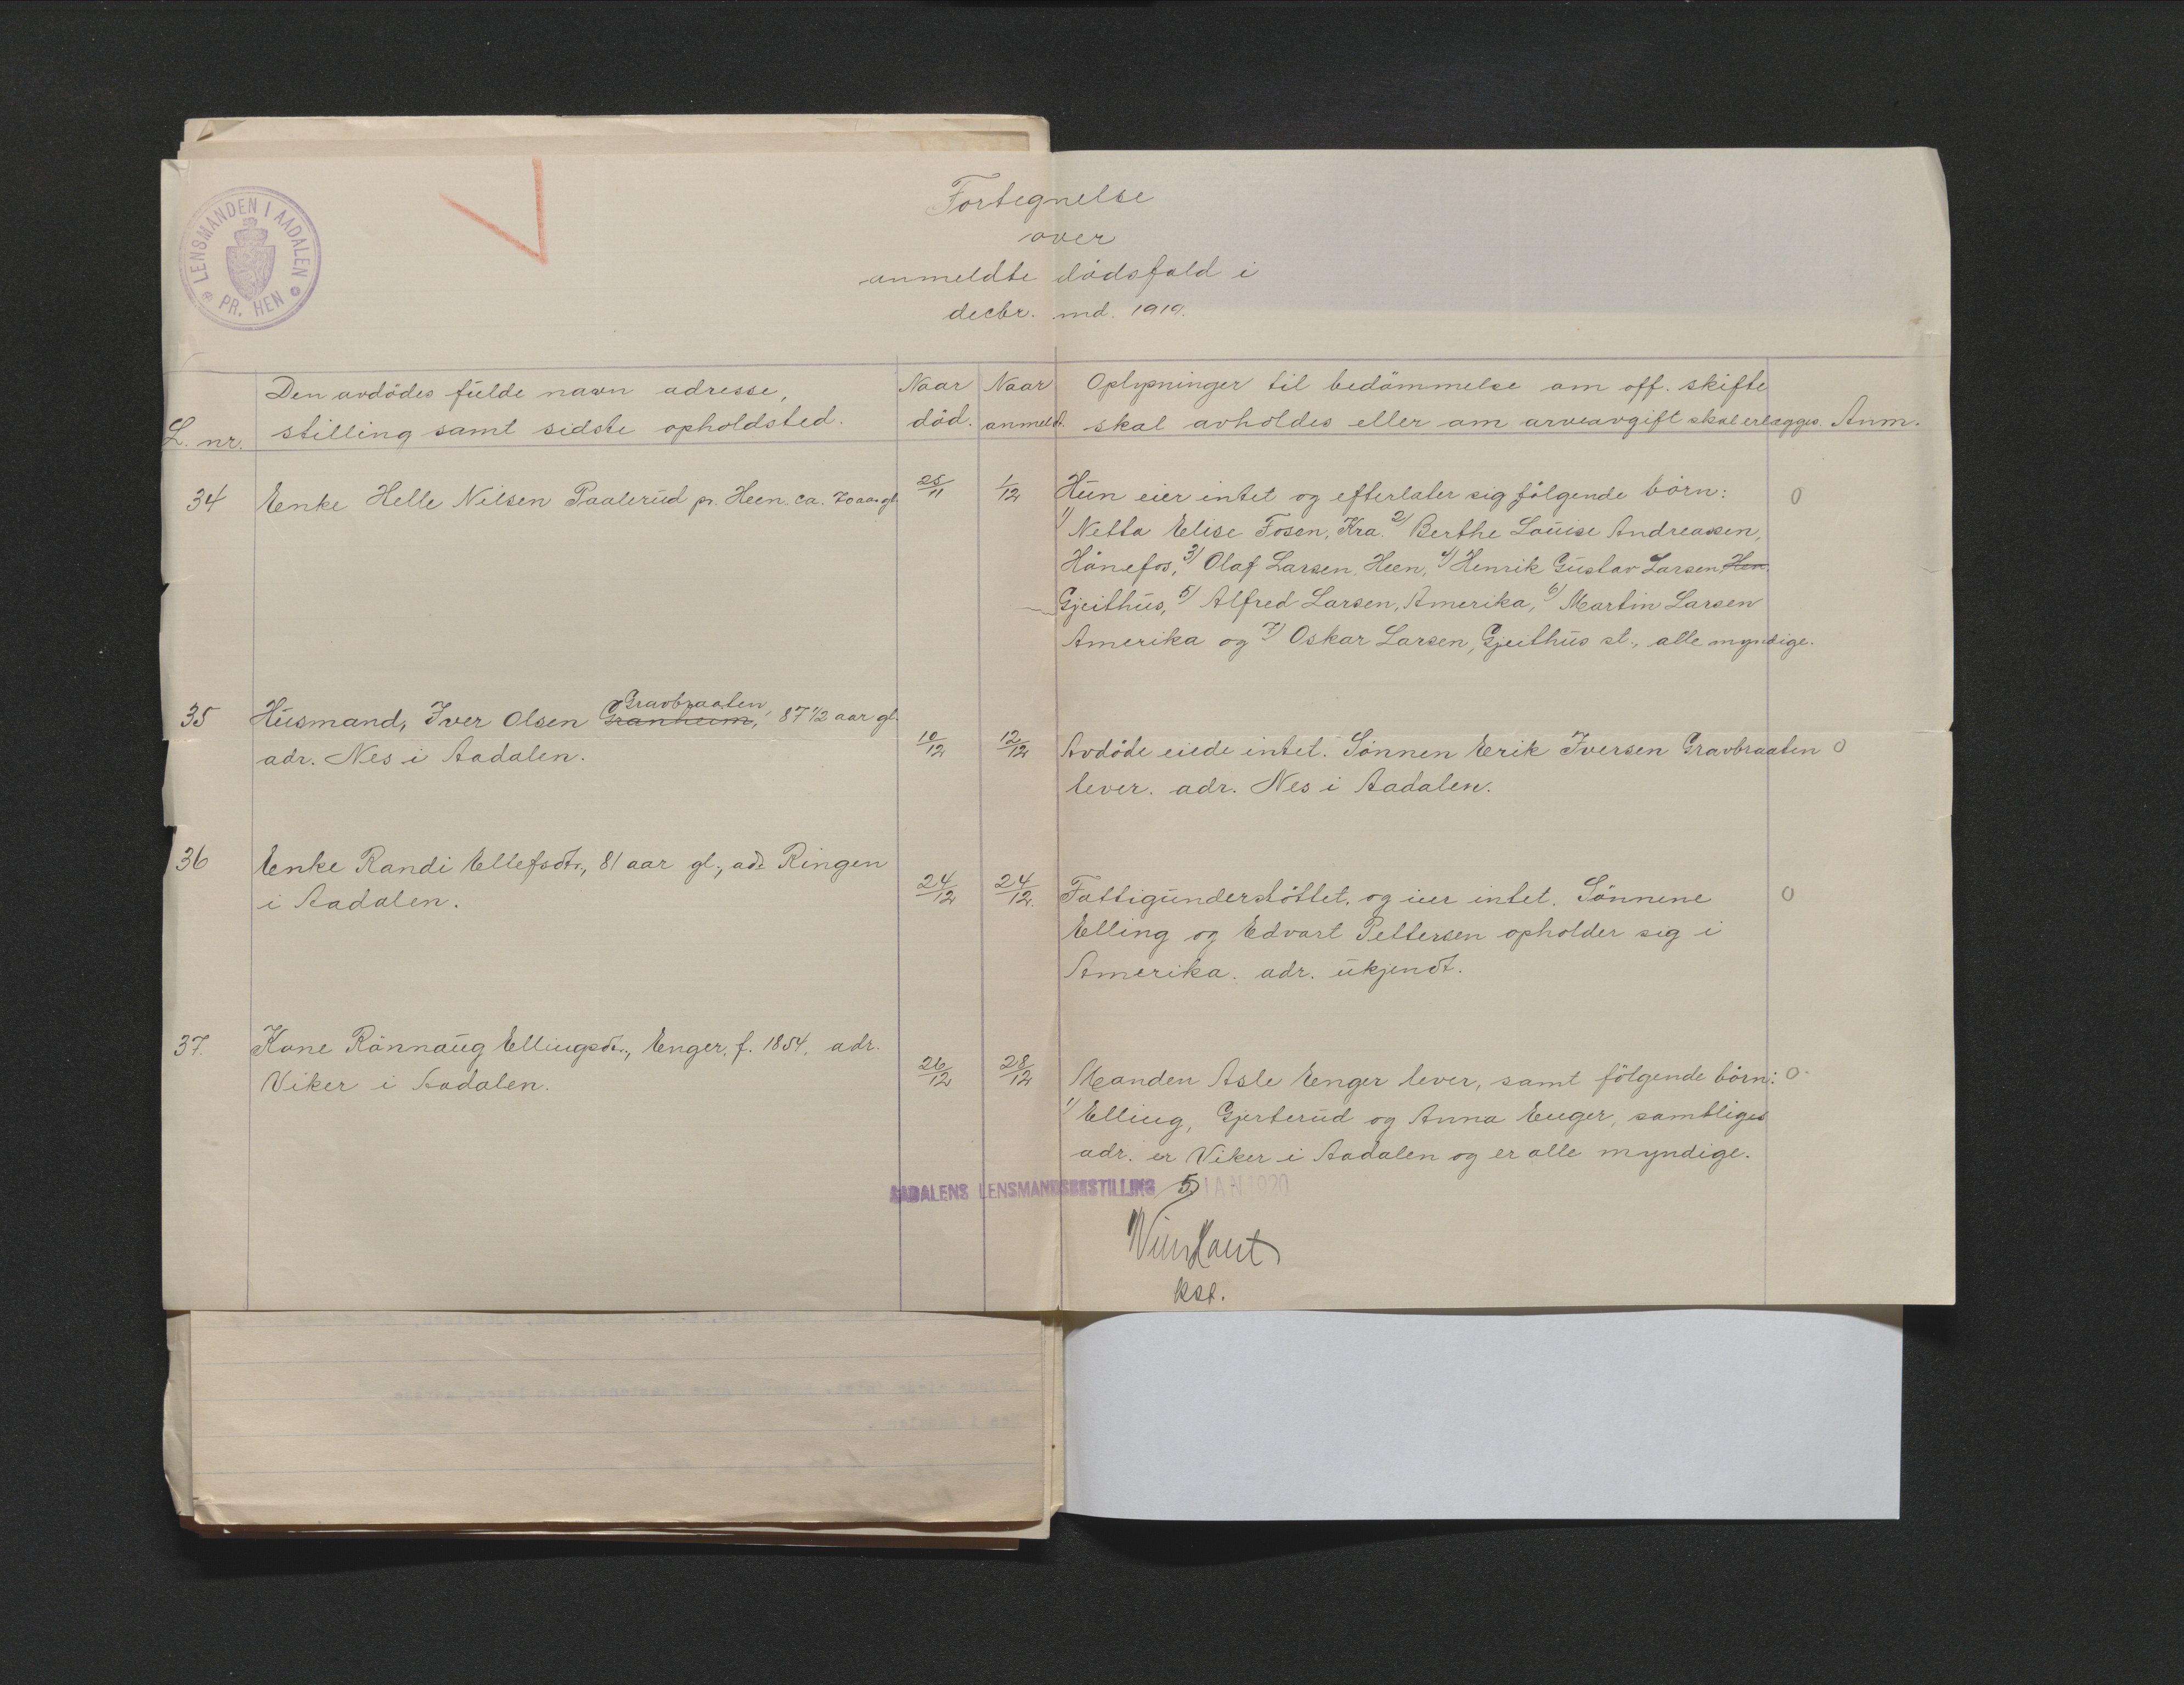 LENSMANDEN I AADALEN
PR. HEN
Fortegnelse
over
anmeldte dödsfald i
decbr. md. 1919.
L. nr.
Den avdödes fulde navn adresse,
stilling samt sidste opholdsted.
Naar
död.
Naar
anmeldt.
Oplysninger til bedömmelse om off. skifte
skal avholdes eller om arveavgift skal erlægges.
Anm.
34 Enke Helle Nilsen Paalerud pr. Heen. ca. 70 aar gl. 25/11 1/12 Hun eier intet og efterlater sig fölgende börn: 0
1) Netta Elise Fosen, Kra. 2) Berthe Louise Andreassen,
Hönefos, 3) Olaf Larsen, Heen, 4) Henrik Gustav Larsen, Hen.
Gjeithus, 5) Alfred Larsen, Amerika, 6) Martin Larsen
Amerika og 7) Oskar Larsen, Gjeithus st., alle myndige.
Gravbraaten,
35 Husmand, Iver Olsen Granheim, 87 1/2 aar gl.
adr. Nes i Aadalen. 10/12 12/12 Avdöde eiede intet. Sönnen Erik Iversen Gravbraaten 0
lever. adr. Nes i Aadalen.
36 Enke Randi Ellefsdtr., 81 aar gl., adr. Ringen
i Aadalen. 24/12 24/12. Fattigunderstöttet, og eier intet. Sönnene 0
Elling og Edvart Pettersen opholder sig i
Amerika. adr. ukjendt.
37. Kone Rönnaug Ellingsdtr., Enger, f. 1854, adr.
Viker i Aadalen. 26/12 28/12 Manden Asle Enger lever, samt fölgende börn: 0
1) Elling, Gjerterud og Anna Enger, samtliges
adr. er Viker i Aadalen og er alle myndige.
AADALENS LENSMANDSBESTILLING 5 JAN 1920
kst.